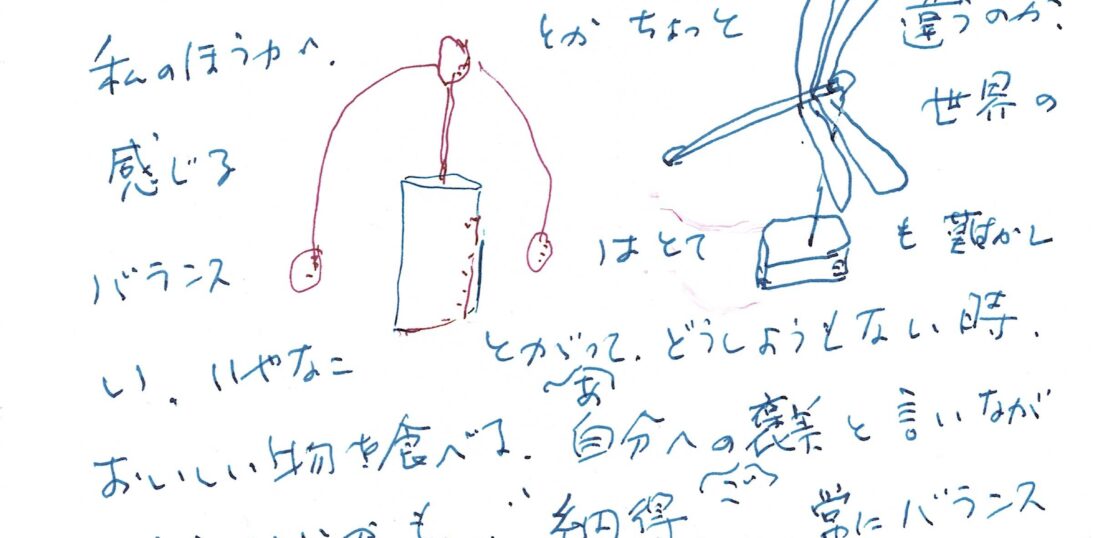 私のほうが、 とか ちょっと 違うのか、
感じる 世界の
バランス はとて も 難かし
い、いやなこ とがって、どうしようもない時、
あ
おいしい物を食べる、自分への褒美と言いなが
ご
も 常にバランス